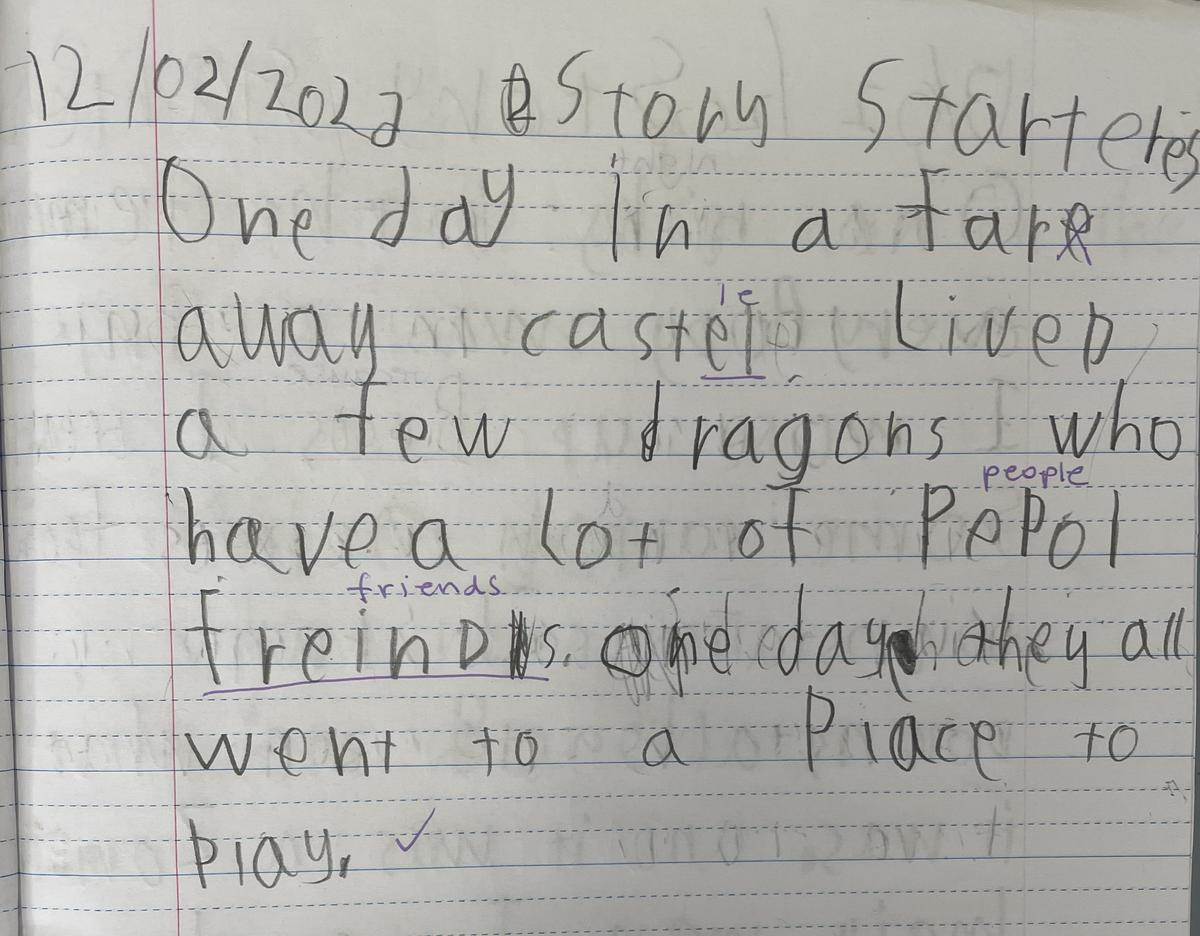 12/02/2022 Story Starteres
One day in a far
away castel Lived
le
a few dragons who
people
have a lot of PePol
friends
freinDs. One day they all
went to a Place to
Play.